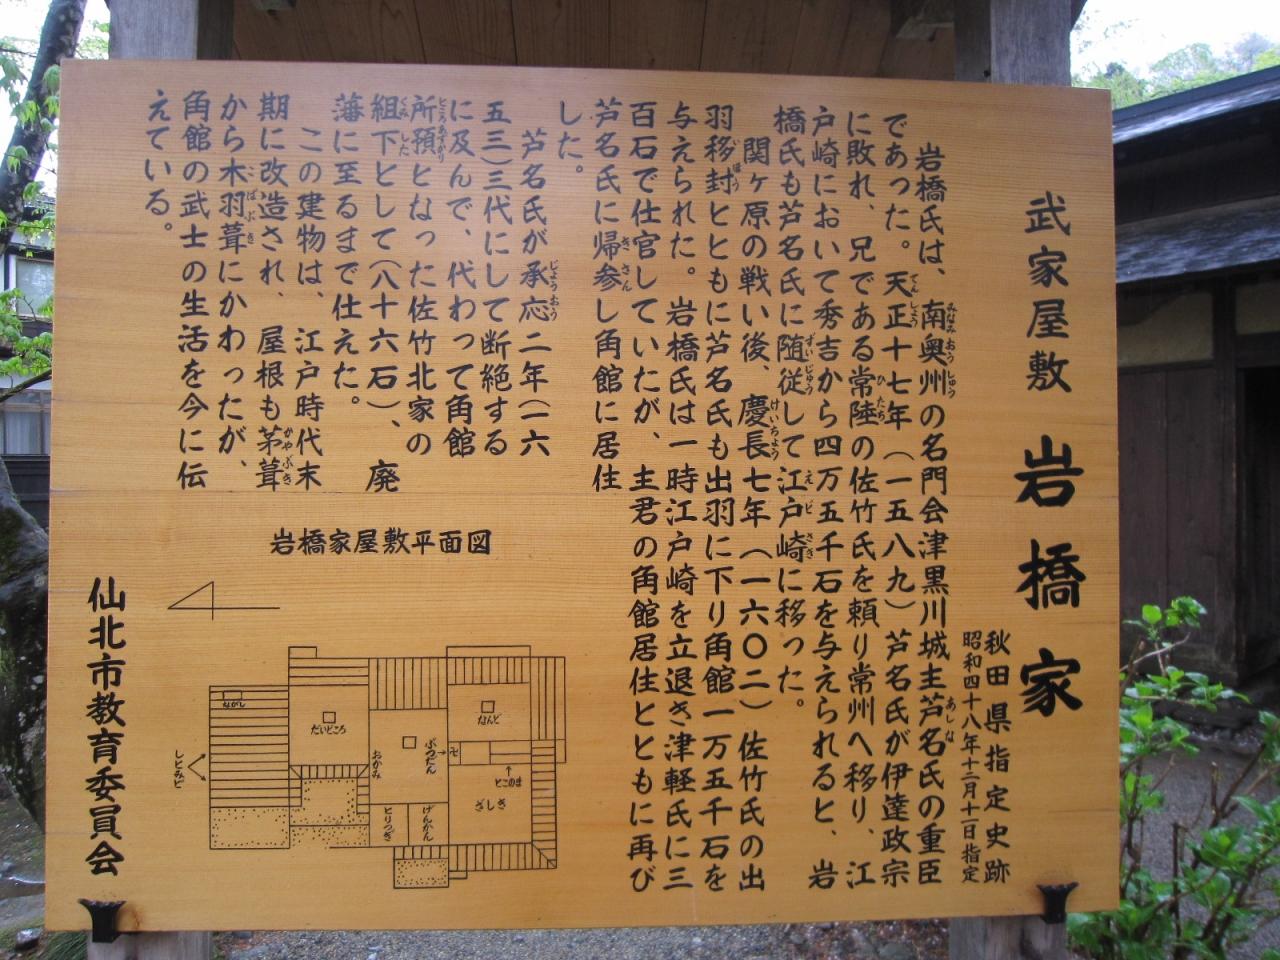 武家屋敷 岩橋家
秋田県指定史跡
昭和四十八年十二月十一日指定
岩橋氏は、南奥州の名門会津黒川城主芦名氏の重臣
であった。天正十七年（一五八九）芦名氏が伊達政宗
に敗れ、兄である常陸の佐竹氏を頼り常州へ移り、江
戸崎において秀吉から四万五千石を与えられると、岩
橋氏も芦名氏に随従して江戸崎に移った。
関ヶ原の戦い後、慶長七年（一六〇二）佐竹氏の出
羽移封とともに芦名氏も出羽に下り角館一万五千石を
与えられた。岩橋氏は一時江戸崎を立退き津軽氏に三
百石で仕官していたが、主君の角館居住とともに再び
芦名氏に帰参し角館に居住
した。
芦名氏が承応二年（一六
五三）三代にして断絶する
に及んで、代わって角館
所預となった佐竹北家の
組下として（八十六石）、廃
藩に至るまで仕えた。
この建物は、江戸時代末
期に改造され、屋根も茅葺
から木羽葺にかわったが、
角館の武士の生活を今に伝
えている。
岩橋家屋敷平面図
ながし
だいどころ
なんど
おかみ
ぶつだん
とこのま
ざしき
しとみど
とりつぎ
げんかん
仙北市教育委員会